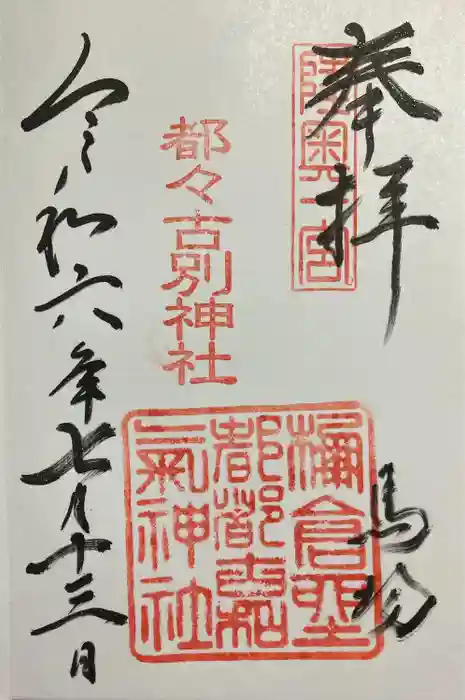 奉拝
陸奥一宮
馬場
都々古別神社
棚倉
都都古和
氣神社
令和六年七月十三日